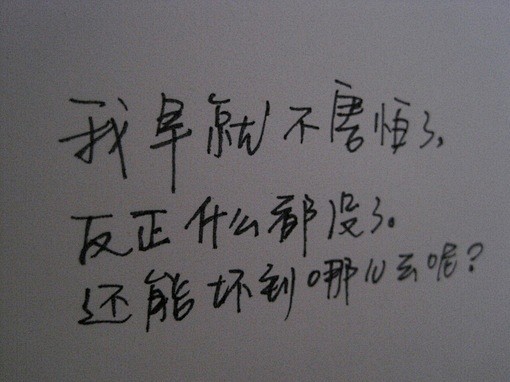 我早就不害怕了,
反正什么都没了。
还能坏到哪儿去呢?